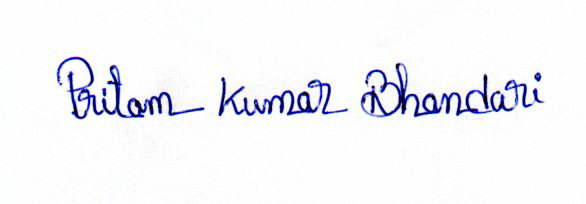 Pritam Kumar Bhandari